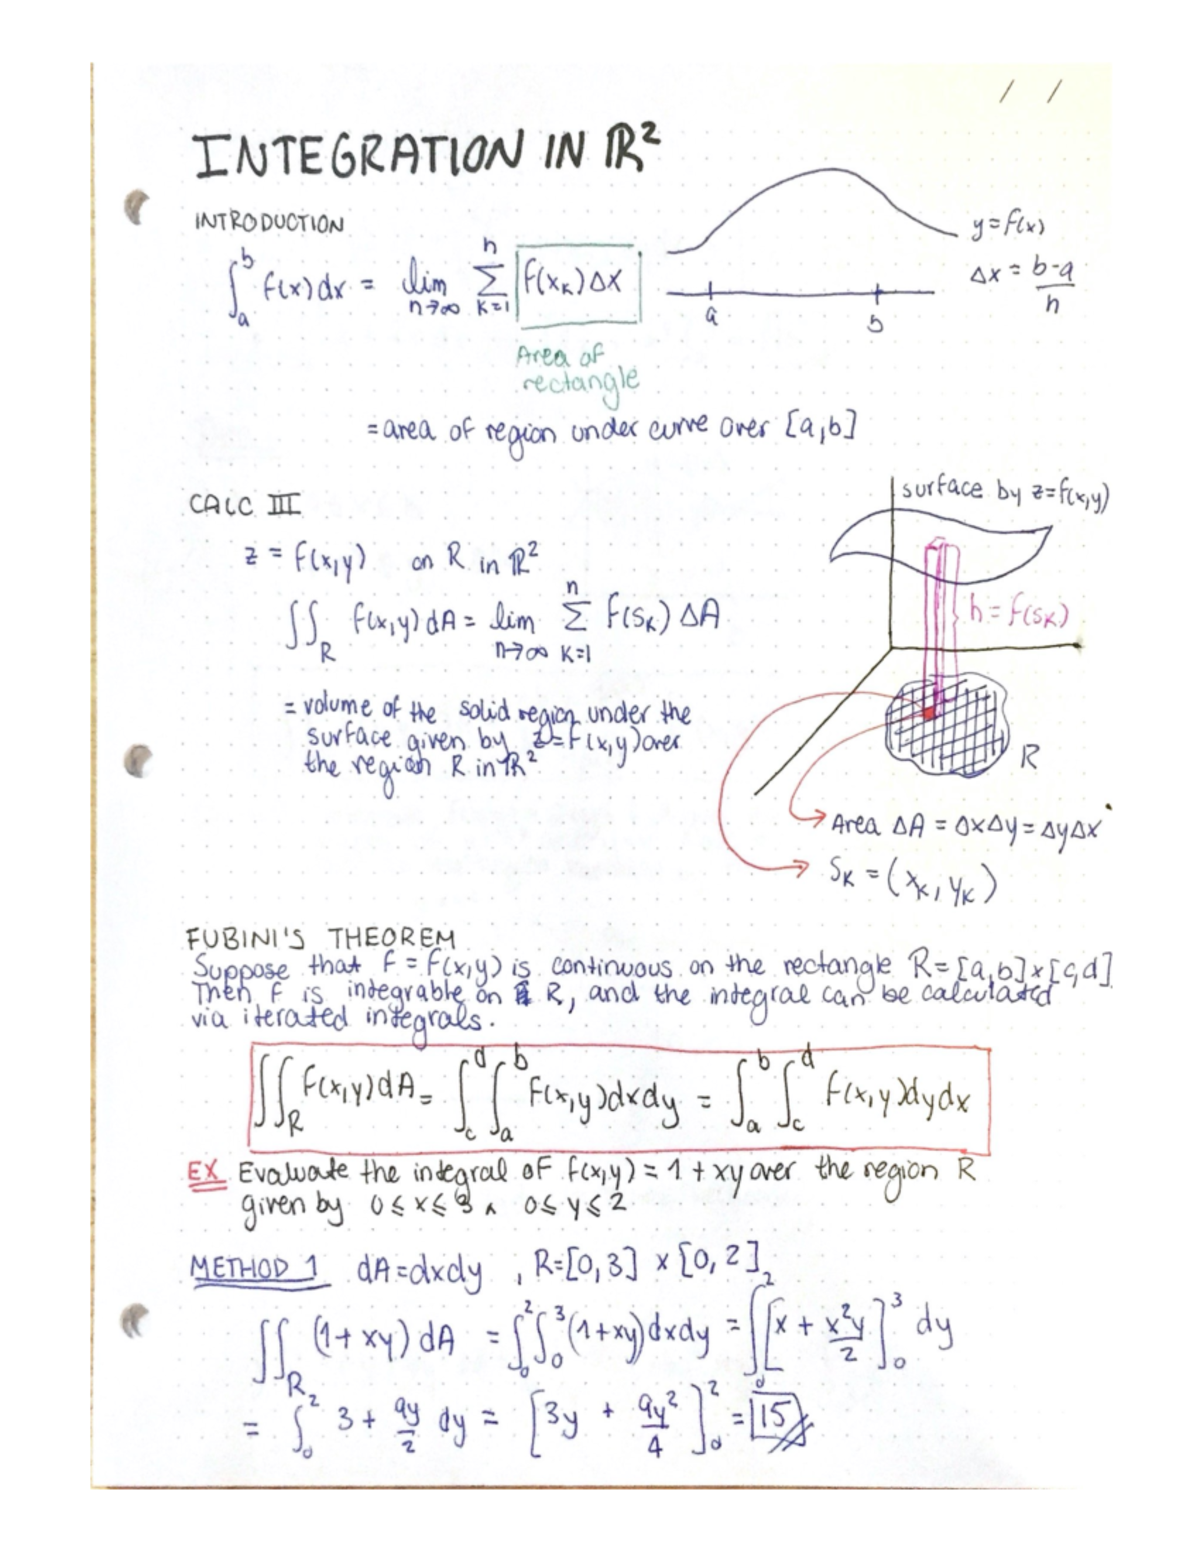 / /
INTEGRATION IN ℝ²
INTRODUCTION
∫_a^b f(x)dx = lim_{n→∞} Σ_{k=1}^n f(x_k)Δx
Area of
rectangle
y=f(x)
Δx = (b-a)/n
a b
= area of region under curve over [a,b]
CALC III
z = f(x,y) on R in ℝ²
∬_R f(x,y)dA = lim_{n→∞} Σ_{k=1}^n f(s_k) ΔA
= volume of the solid region under the
surface given by z=f(x,y) over
the region R in ℝ²
surface by z=f(x,y)
h = f(s_k)
R
Area ΔA = ΔxΔy = ΔyΔx
S_k = (x_k, y_k)
FUBINI'S THEOREM
Suppose that f = f(x,y) is continuous on the rectangle R=[a,b]×[c,d]
Then f is integrable on R, and the integral can be calculated
via iterated integrals.
∬_R f(x,y)dA = ∫_c^d ∫_a^b f(x,y)dxdy = ∫_a^b ∫_c^d f(x,y)dydx
EX Evaluate the integral of f(x,y) = 1 + xy over the region R
given by 0 ≤ x ≤ 3 ∧ 0 ≤ y ≤ 2
METHOD 1 dA=dxdy , R=[0,3] × [0,2]
∬_R (1+xy) dA = ∫_0^2 ∫_0^3 (1+xy)dxdy = ∫_0^2 [x + x²y/2]_0^3 dy
= ∫_0^2 3 + 9y/2 dy = [3y + 9y²/4]_0^2 = 15